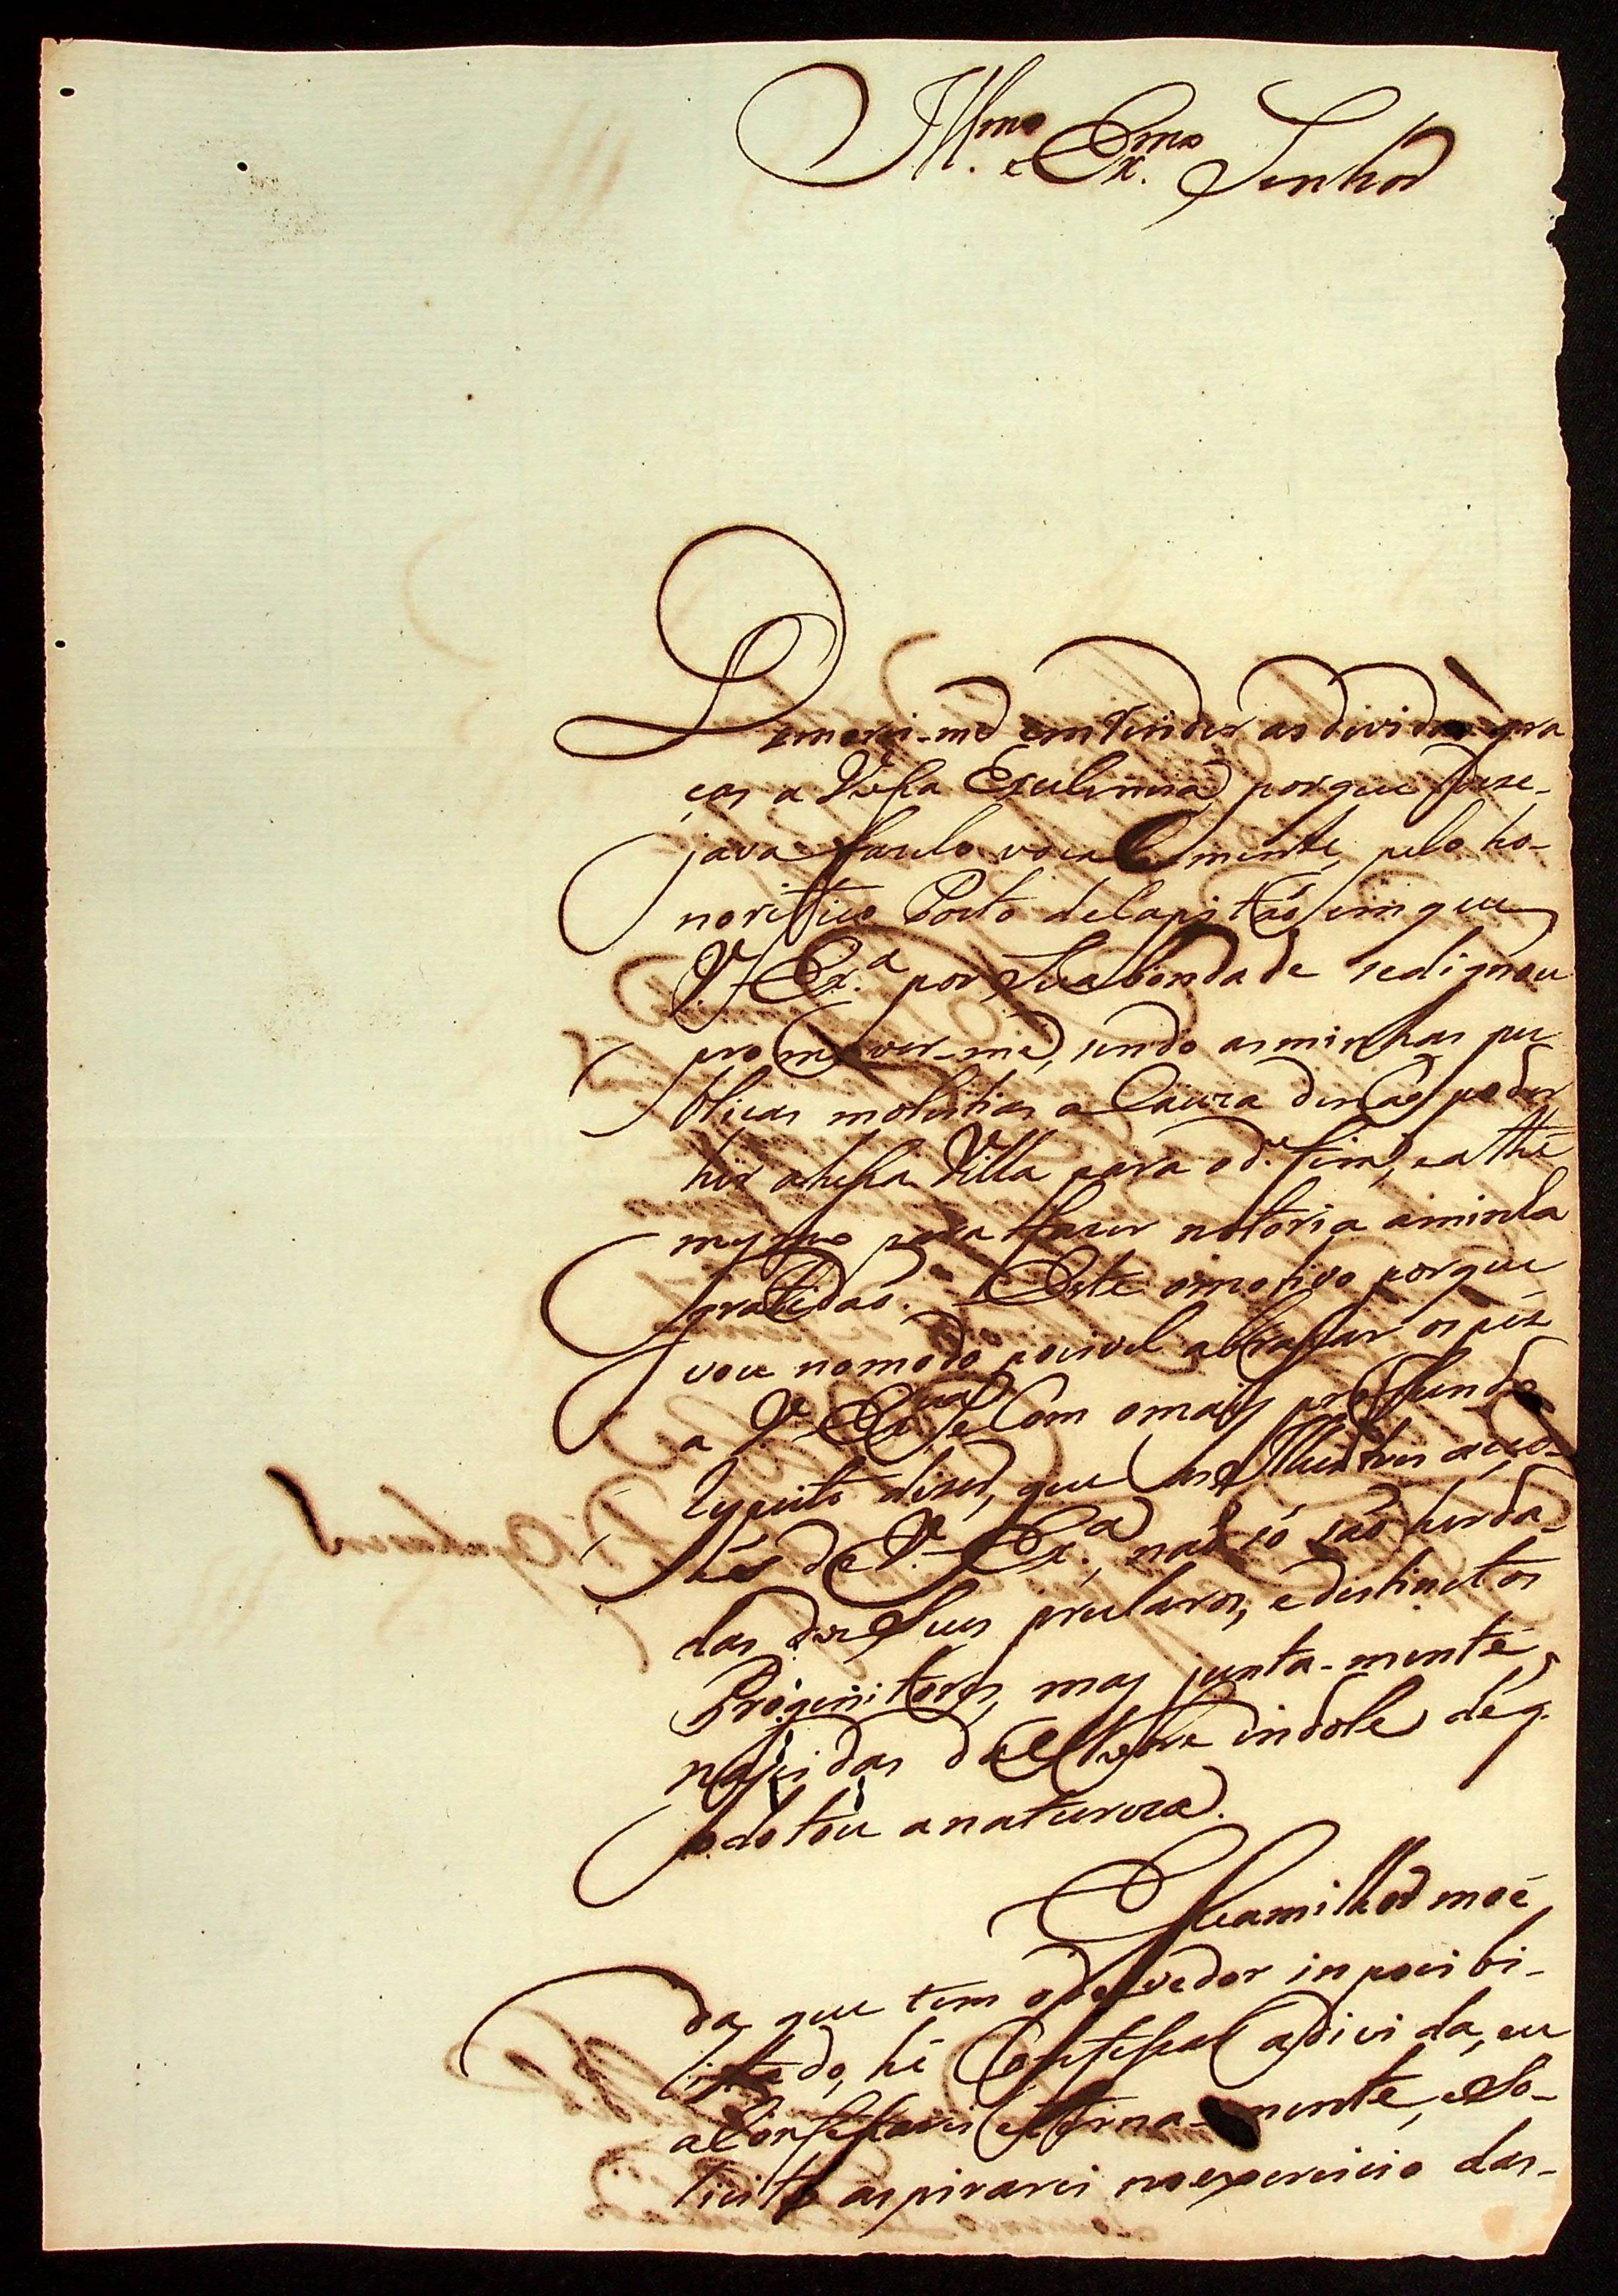 Ill.mo e Ex.mo Senhor
Demorei-me em render as dividas gra
ças a Vossa Excelencia, porque dese-
java fazelo vocalmente, pelo ho-
norifico Posto de Capitaõ em que
V. Ex.a por Sua bondade se dignou
promover-me, sendo as minhas pu
blicas molestias a Cauza de naõ poder
hir a hessa Villa para o d.o fim, e athe
mesmo para fazer notoria a minha
gratidaõ. Este o motivo porque
vou no modo pocivel abrassar os péz
a V. Ex.cia, e Com o mais proffundo
respeito dizer, que as Illustres acço-
ens de V. Ex.a, naõ só saõ herda-
das de Seus preclaros, e destinctos
Progenitores, mas junta-mente
nascidas da Nobre indole de q.
o dotou a natureza.
Se a milhor moe
da que tem o devedor inpocibi-
litado, hé Confessar a divida, eu
a Confessarei eterna-mente, e So-
licito aspirarei no exercicio das-